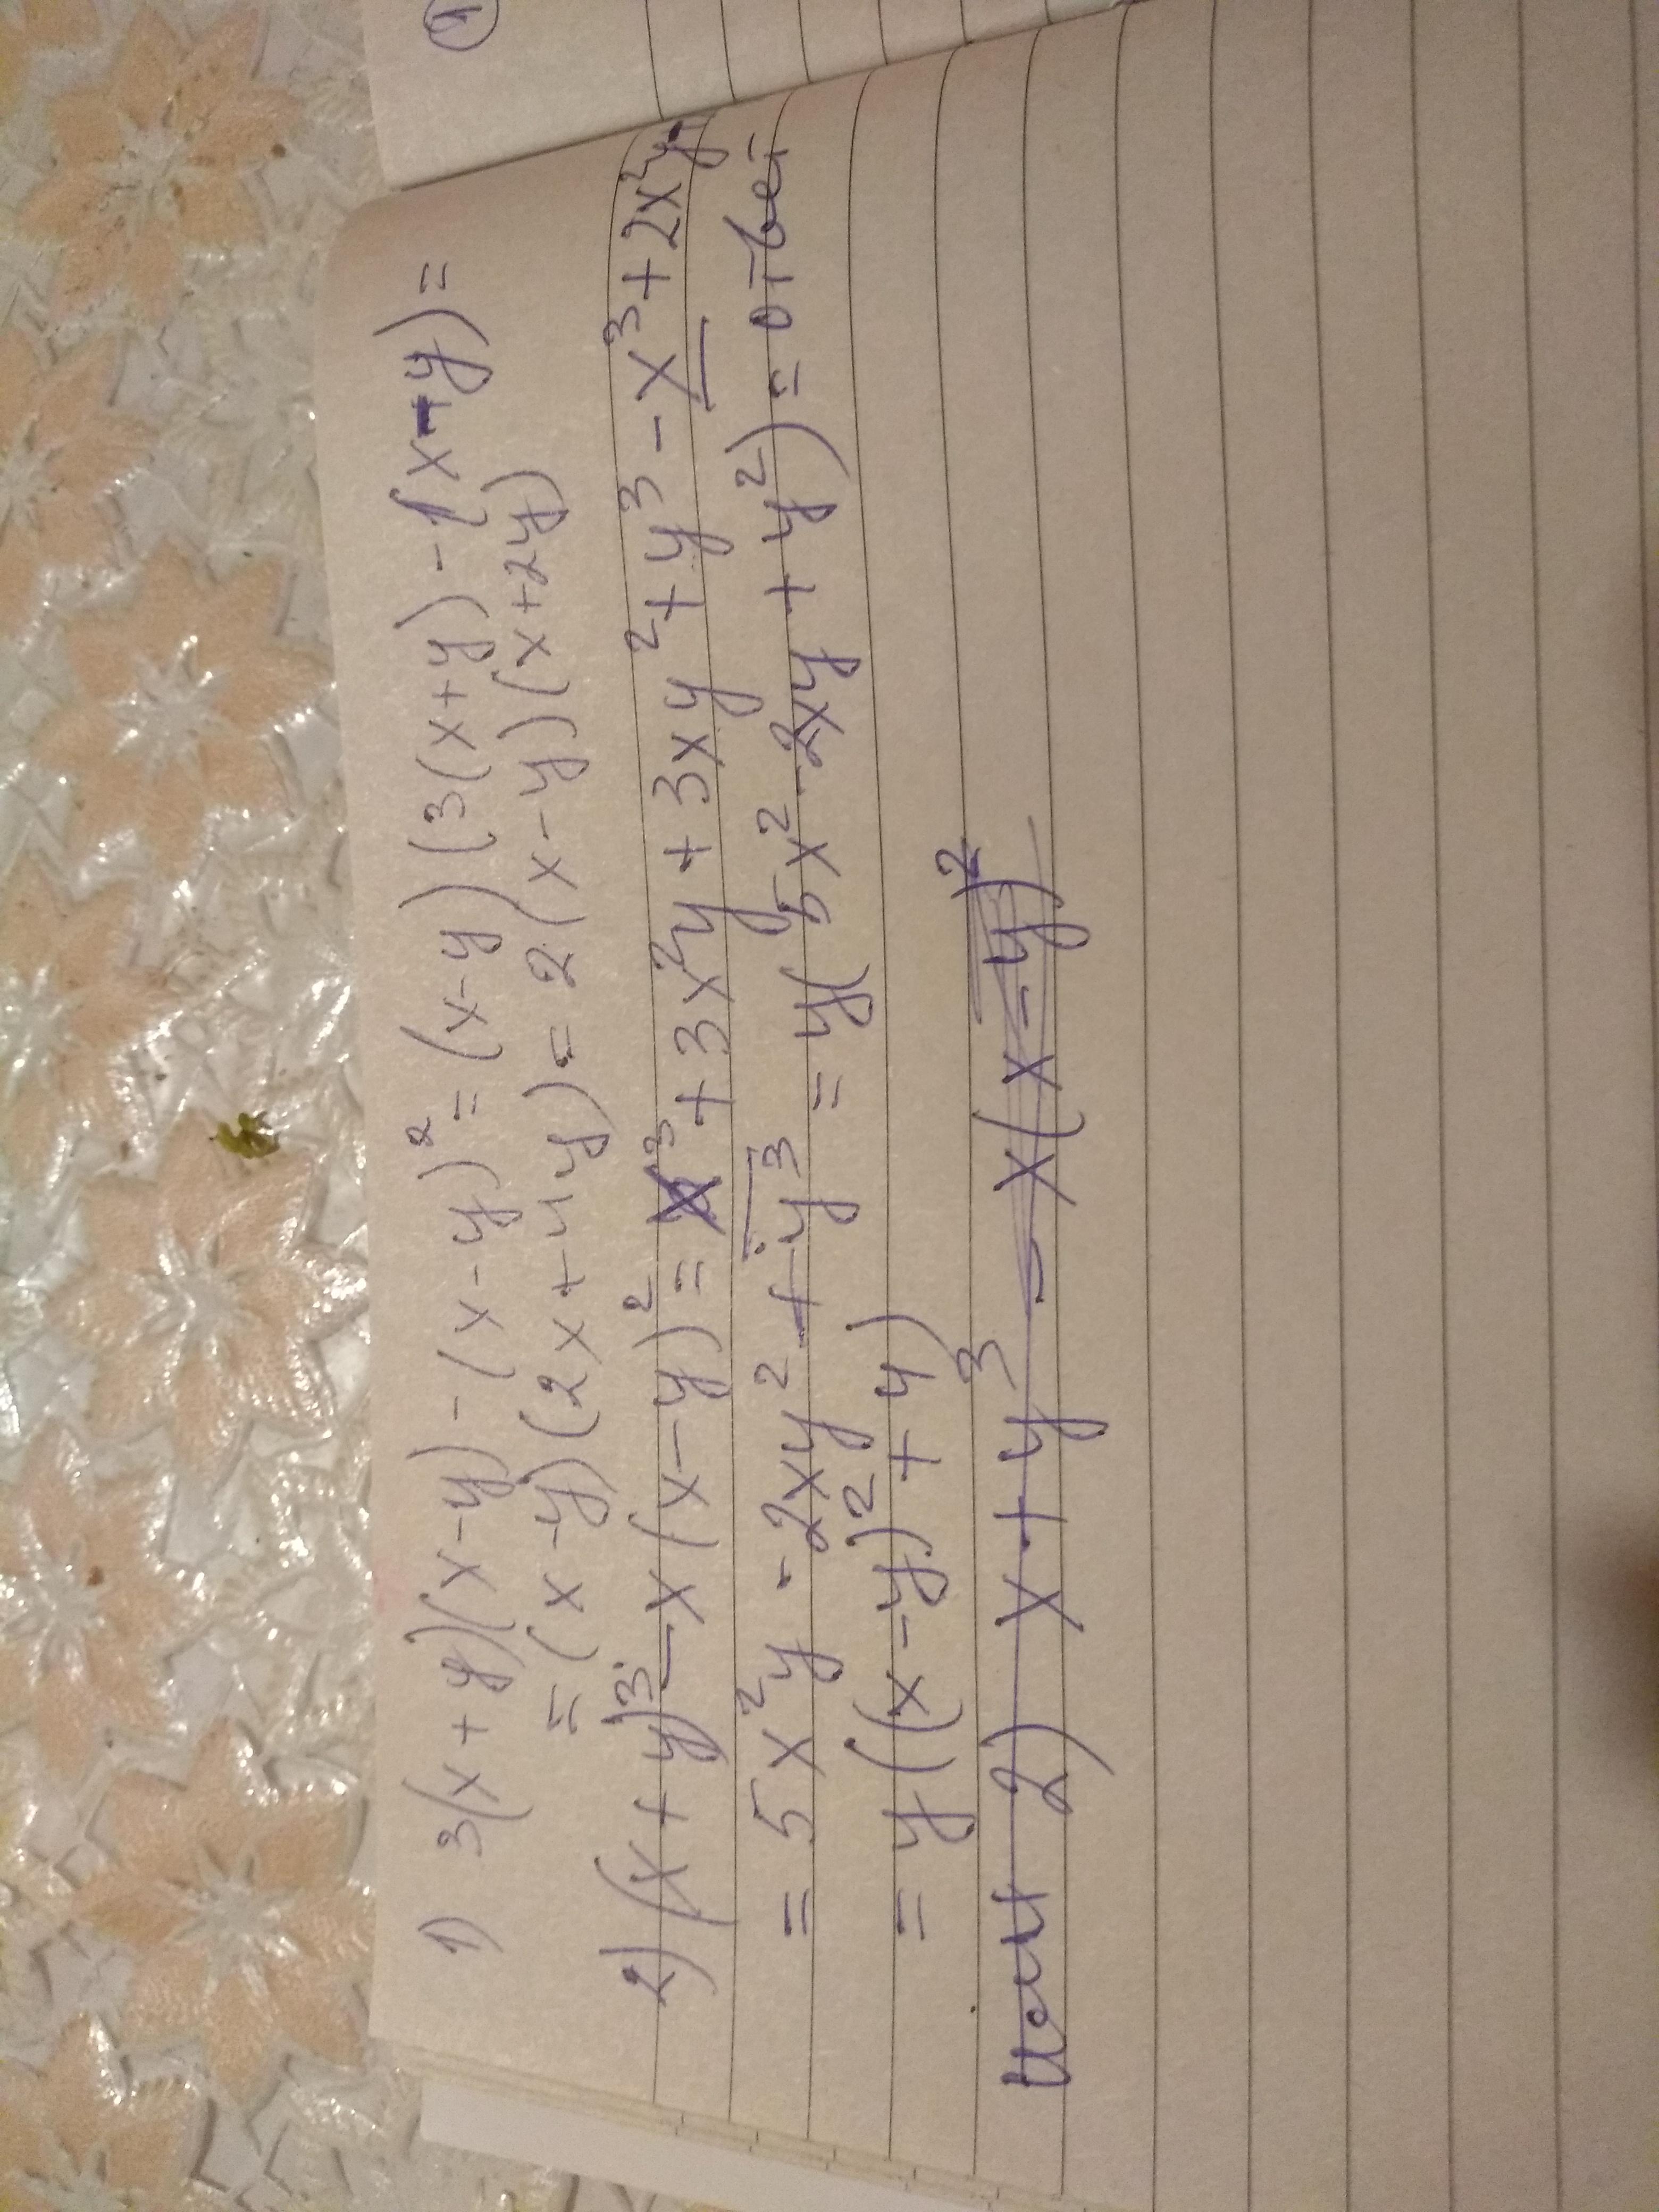 1) 3(x+y)(x-y)-(x-y)²=(x-y)(3(x+y)-(x-y)=
=(x-y)(2x+4y)=2(x-y)(x+2y)
2)(x+y)³-x(x-y)²=x³+3x²y+3xy²+y³-x³+2x²y-
=5x²y-2xy²+y³=y(5x²-2xy+y²)=ответ
=y((x-y)²+4)
2) x+y³-x(x-y)²